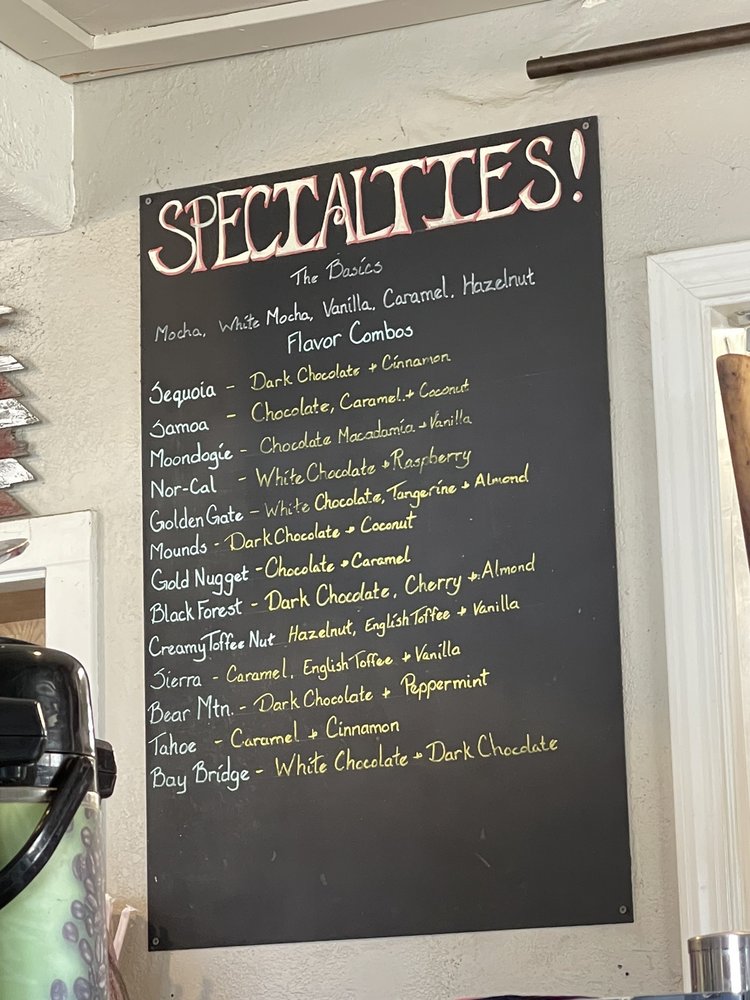 SPECIALTIES!
The Basics
Mocha, White Mocha, Vanilla, Caramel, Hazelnut
Flavor Combos
Sequoia - Dark Chocolate + Cinnamon
Samoa - Chocolate, Caramel + Coconut
Moondogie - Chocolate Macadamia + Vanilla
Nor-Cal - White Chocolate + Raspberry
Golden Gate - White Chocolate, Tangerine + Almond
Mounds - Dark Chocolate + Coconut
Gold Nugget - Chocolate + Caramel
Black Forest - Dark Chocolate, Cherry + Almond
Creamy Toffee Nut Hazelnut, English Toffee + Vanilla
Sierra - Caramel, English Toffee + Vanilla
Bear Mtn. - Dark Chocolate + Peppermint
Tahoe - Caramel + Cinnamon
Bay Bridge - White Chocolate + Dark Chocolate